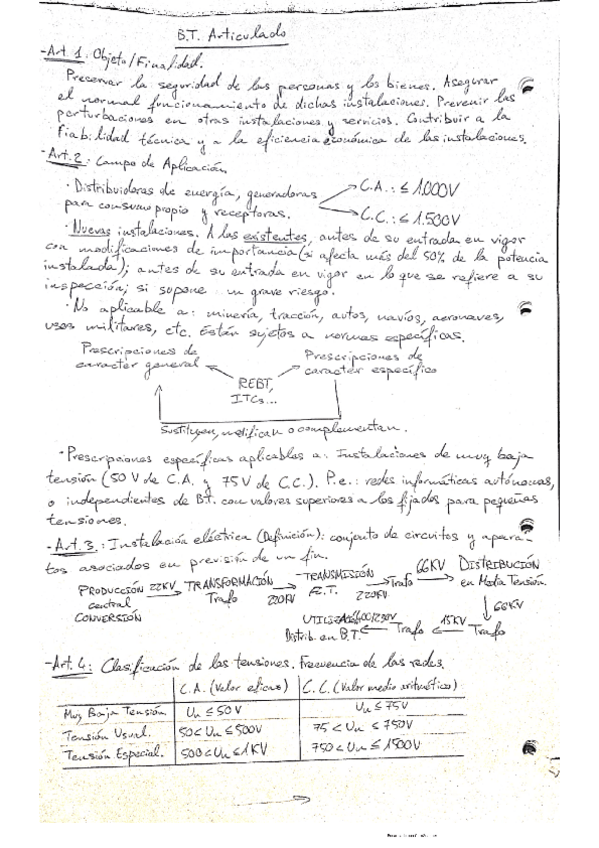 B.T. Articulado
-Art. 1: Objeto/Finalidad.
Preservar la seguridad de las personas y los bienes. Asegurar
el normal funcionamiento de dichas instalaciones. Prevenir las
perturbaciones en otras instalaciones y servicios. Contribuir a la
fiabilidad técnica y a la eficiencia económica de las instalaciones.
-Art. 2: Campo de Aplicación
· Distribuidoras de energía, generadoras → C.A.: ≤ 1.000V
para consumo propio y receptoras. → C.C.: ≤ 1.500V
· Nuevas instalaciones. A las existentes, antes de su entrada en vigor
con modificaciones de importancia (si afecta más del 50% de la potencia
instalada); antes de su entrada en vigor en lo que se refiere a su
inspección; si supone un grave riesgo.
· No aplicable a: minería, tracción, autos, navíos, aeronaves,
usos militares, etc. Están sujetos a normas específicas.
Prescripciones de caracter general ← REBT, ITCs... → Prescripciones de caracter específico
Sustituyen, modifican o complementan.
· Prescripciones específicas aplicables a: Instalaciones de muy baja
tensión (50 V de C.A. y 75 V de C.C.). P.e.: redes informáticas autónomas,
o independientes de B.T. con valores superiores a los fijados para pequeñas
tensiones.
-Art. 3.: Instalación eléctrica (Definición): conjunto de circuitos y apara-
tos asociados en previsión de un fin.
PRODUCCIÓN central CONVERSIÓN 22KV → TRANSFORMACIÓN Trafo → 220KV TRANSMISIÓN 220KV → Trafo 66KV → DISTRIBUCIÓN en Media Tensión
↓ 66KV
Distrib. en B.T. ← Trafo ← 15KV Trafo
-Art. 4: Clasificación de las tensiones. Frecuencia de las redes.
C.A. (Valor eficaz) C.C. (Valor medio aritmético)
Muy Baja Tensión Un ≤ 50V Un ≤ 75V
Tensión Usual. 50 < Un ≤ 500V 75 < Un ≤ 750V
Tensión Especial. 500 < Un ≤ 1KV 750 < Un ≤ 1500V